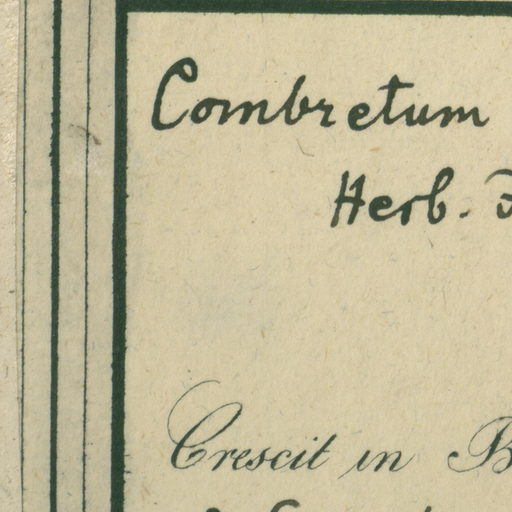 Combretum
Herb.
Crescit in